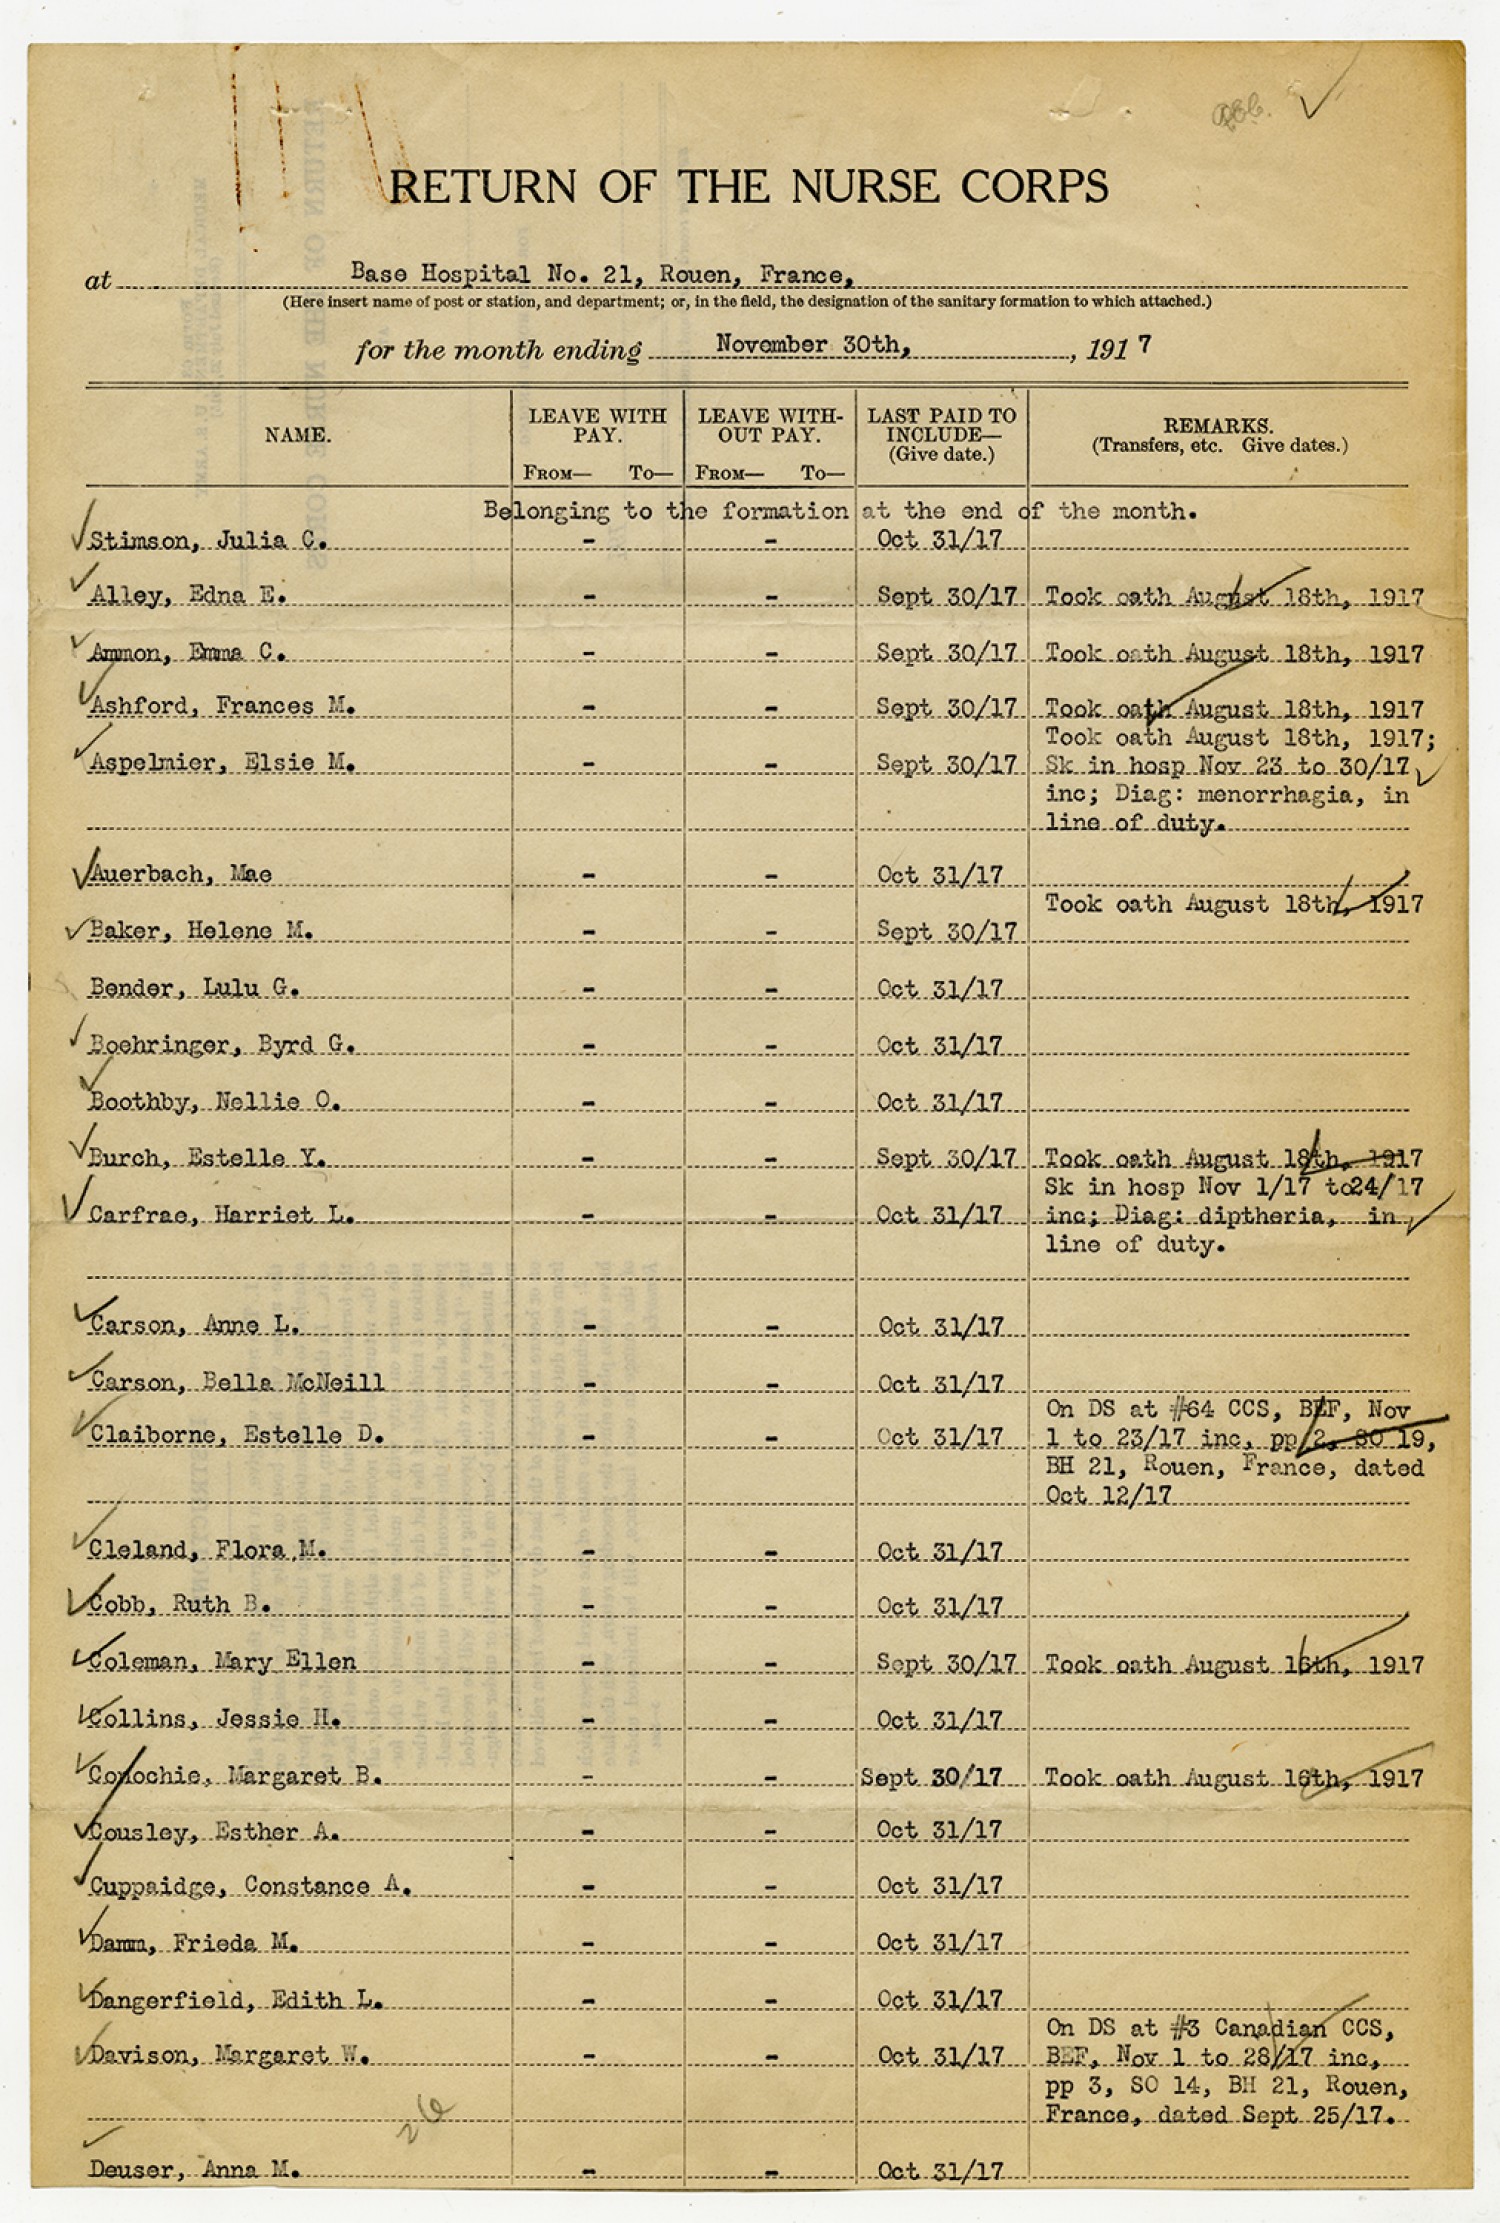 RETURN OF THE NURSE CORPS
at Base Hospital No. 21, Rouen, France,
(Here insert name of post or station, and department; or, in the field, the designation of the sanitary formation to which attached.)
for the month ending November 30th, , 1917
NAME. LEAVE WITH PAY. FROM— TO— LEAVE WITH-OUT PAY. FROM— TO— LAST PAID TO INCLUDE— (Give date.) REMARKS. (Transfers, etc. Give dates.)
Belonging to the formation at the end of the month.
Stimson, Julia C. - - Oct 31/17
Alley, Edna E. - - Sept 30/17 Took oath August 18th, 1917
Ammon, Emma C. - - Sept 30/17 Took oath August 18th, 1917
Ashford, Frances M. - - Sept 30/17 Took oath August 18th, 1917
Took oath August 18th, 1917;
Aspelmier, Elsie M. - - Sept 30/17 Sk in hosp Nov 23 to 30/17
inc; Diag: menorrhagia, in
line of duty.
Auerbach, Mae - - Oct 31/17
Took oath August 18th, 1917
Baker, Helene M. - - Sept 30/17
Bender, Lulu G. - - Oct 31/17
Boehringer, Byrd G. - - Oct 31/17
Boothby, Nellie O. - - Oct 31/17
Burch, Estelle Y. - - Sept 30/17 Took oath August 18th, 1917
Sk in hosp Nov 1/17 to24/17
Carfrae, Harriet L. - - Oct 31/17 inc; Diag: diptheria, in
line of duty.
Carson, Anne L. - - Oct 31/17
Carson, Bella McNeill - - Oct 31/17
On DS at #64 CCS, BEF, Nov
Claiborne, Estelle D. - - Oct 31/17 1 to 23/17 inc, pp 2, SO 19,
BH 21, Rouen, France, dated
Oct 12/17
Cleland, Flora M. - - Oct 31/17
Cobb, Ruth B. - - Oct 31/17
Coleman, Mary Ellen - - Sept 30/17 Took oath August 16th, 1917
Collins, Jessie H. - - Oct 31/17
Conochie, Margaret B. - - Sept 30/17 Took oath August 16th, 1917
Cousley, Esther A. - - Oct 31/17
Cuppaidge, Constance A. - - Oct 31/17
Damm, Frieda M. - - Oct 31/17
Dangerfield, Edith L. - - Oct 31/17
On DS at #3 Canadian CCS,
Davison, Margaret W. - - Oct 31/17 BEF, Nov 1 to 28/17 inc,
pp 3, SO 14, BH 21, Rouen,
France, dated Sept 25/17.
26
Deuser, Anna M. - - Oct 31/17